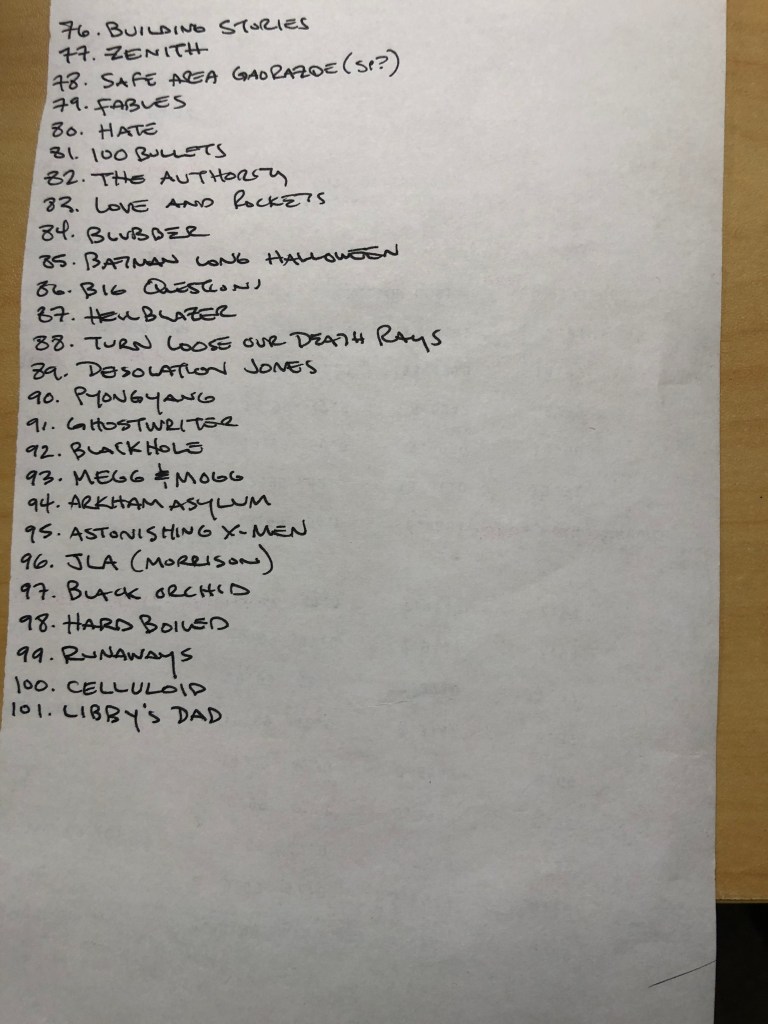 76. BUILDING STORIES
77. ZENITH
78. SAFE AREA GAORAZDE (SP?)
79. FABLES
80. HATE
81. 100 BULLETS
82. THE AUTHORITY
83. LOVE AND ROCKETS
84. BLUBBER
85. BATMAN LONG HALLOWEEN
86. BIG QUESTIONS
87. HELLBLAZER
88. TURN LOOSE OUR DEATH RAYS
89. DESOLATION JONES
90. PYONGYANG
91. GHOSTWRITER
92. BLACK HOLE
93. MEGG & MOGG
94. ARKHAM ASYLUM
95. ASTONISHING X-MEN
96. JLA (MORRISON)
97. BLACK ORCHID
98. HARD BOILED
99. RUNAWAYS
100. CELLULOID
101. LIBBY'S DAD